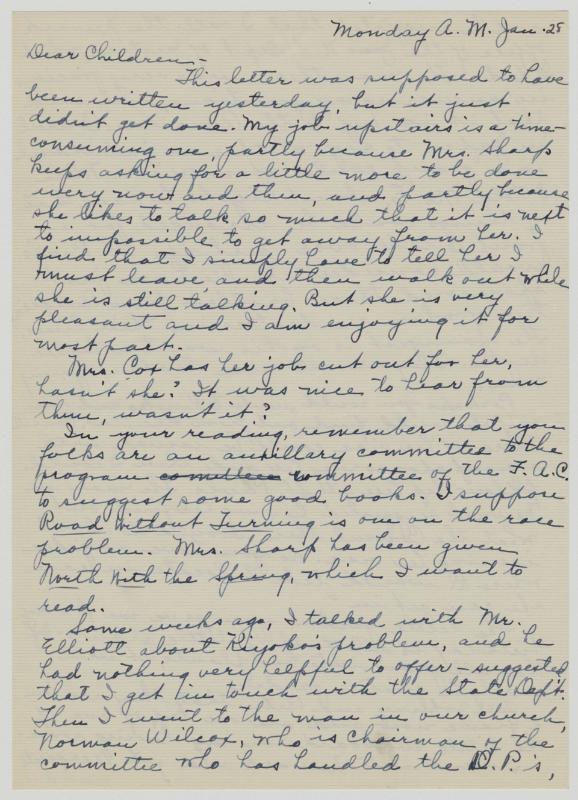 Monday A. M. Jan. 28
Dear Children -
This letter was supposed to have
been written yesterday, but it just
didn't get done. My job upstairs is a time-
consuming one, partly because Mrs. Sharp
keeps asking for a little more to be done
every now and then, and partly because
she likes to talk so much that it is next
to impossible to get away from her. I
find that I simply have to tell her I
must leave, and then walk out while
she is still talking. But she is very
pleasant and I am enjoying it for
most part.
Mrs. Cox has her job cut out for her,
hasn't she? It was nice to hear from
them, wasn't it?
In your reading, remember that you
folks are an auxillary committee to the
program committee of the F. A. C.
to suggest some good books. I suppose
Road Without Turning is one on the race
problem. Mrs. Sharp has been given
North With the Spring, which I want to
read.
Some weeks ago, I talked with Mr.
Elliott about Kiyoko's problem, and he
had nothing very helpful to offer - suggested
that I get in touch with the State Dep't.
Then I went to the man in our church,
Norman Wilcox, who is chairman of the
committee who has handled the D. P.'s,